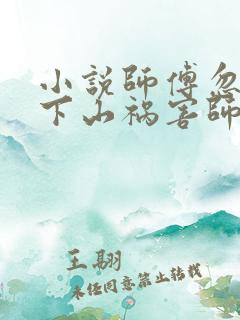 小説師傅忽
下山禍害師
王翦
未经同意禁止转载